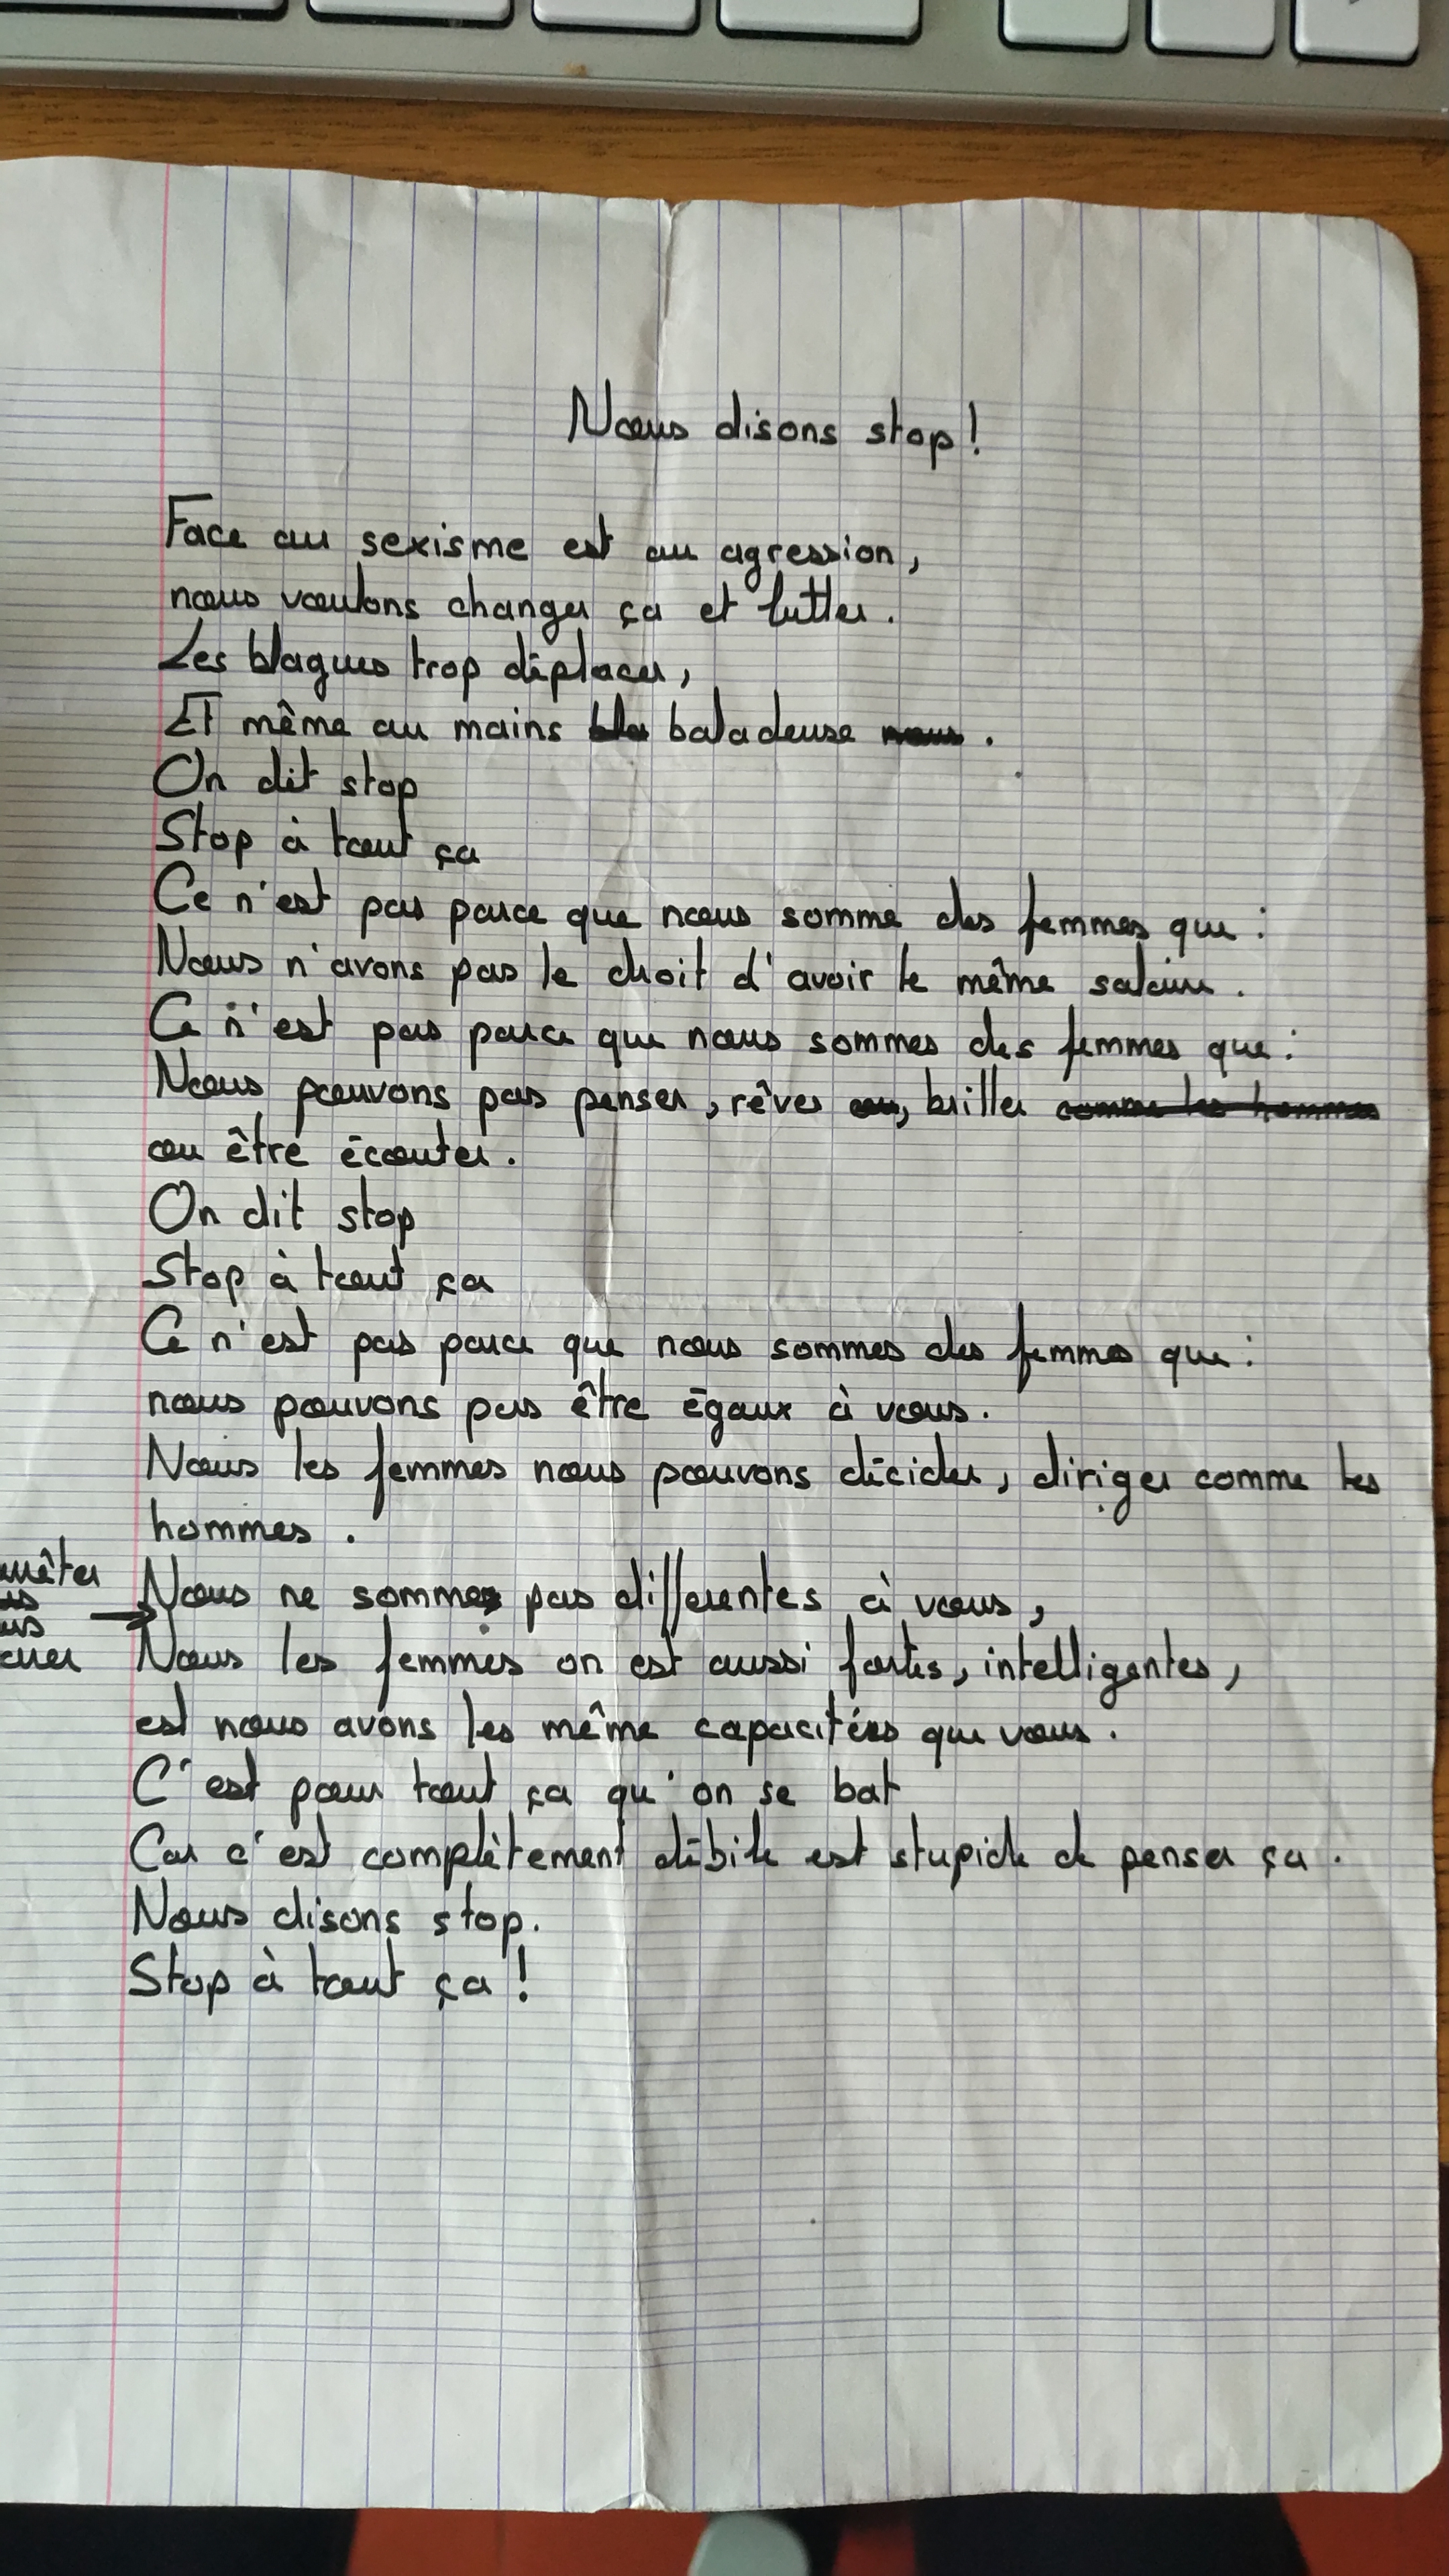 Nous disons stop!
Face au sexisme est au agression,
nous voulons changer ça et lutter.
Les blagues trop déplacer,
Et même au mains bla baladeuse nous.
On dit stop
Stop à tout ça
Ce n'est pas parce que nous somme des femmes que:
Nous n'avons pas le droit d'avoir le même salaire.
Ce n'est pas parce que nous sommes des femmes que:
Nous pouvons pas penser, rêver ou, briller comme les hommes
ou être écouter.
On dit stop
Stop à tout ça
Ce n'est pas parce que nous sommes des femmes que:
nous pouvons pas être égaux à vous.
Nous les femmes nous pouvons décider, diriger comme les
hommes.
Nous ne sommes pas differentes à vous,
Nous les femmes on est aussi fortes, intelligentes,
est nous avons les même capacitées que vous.
C'est pour tout ça qu'on se bat
Car c'est complètement débile est stupide de penser ça.
Nous disons stop.
Stop à tout ça!